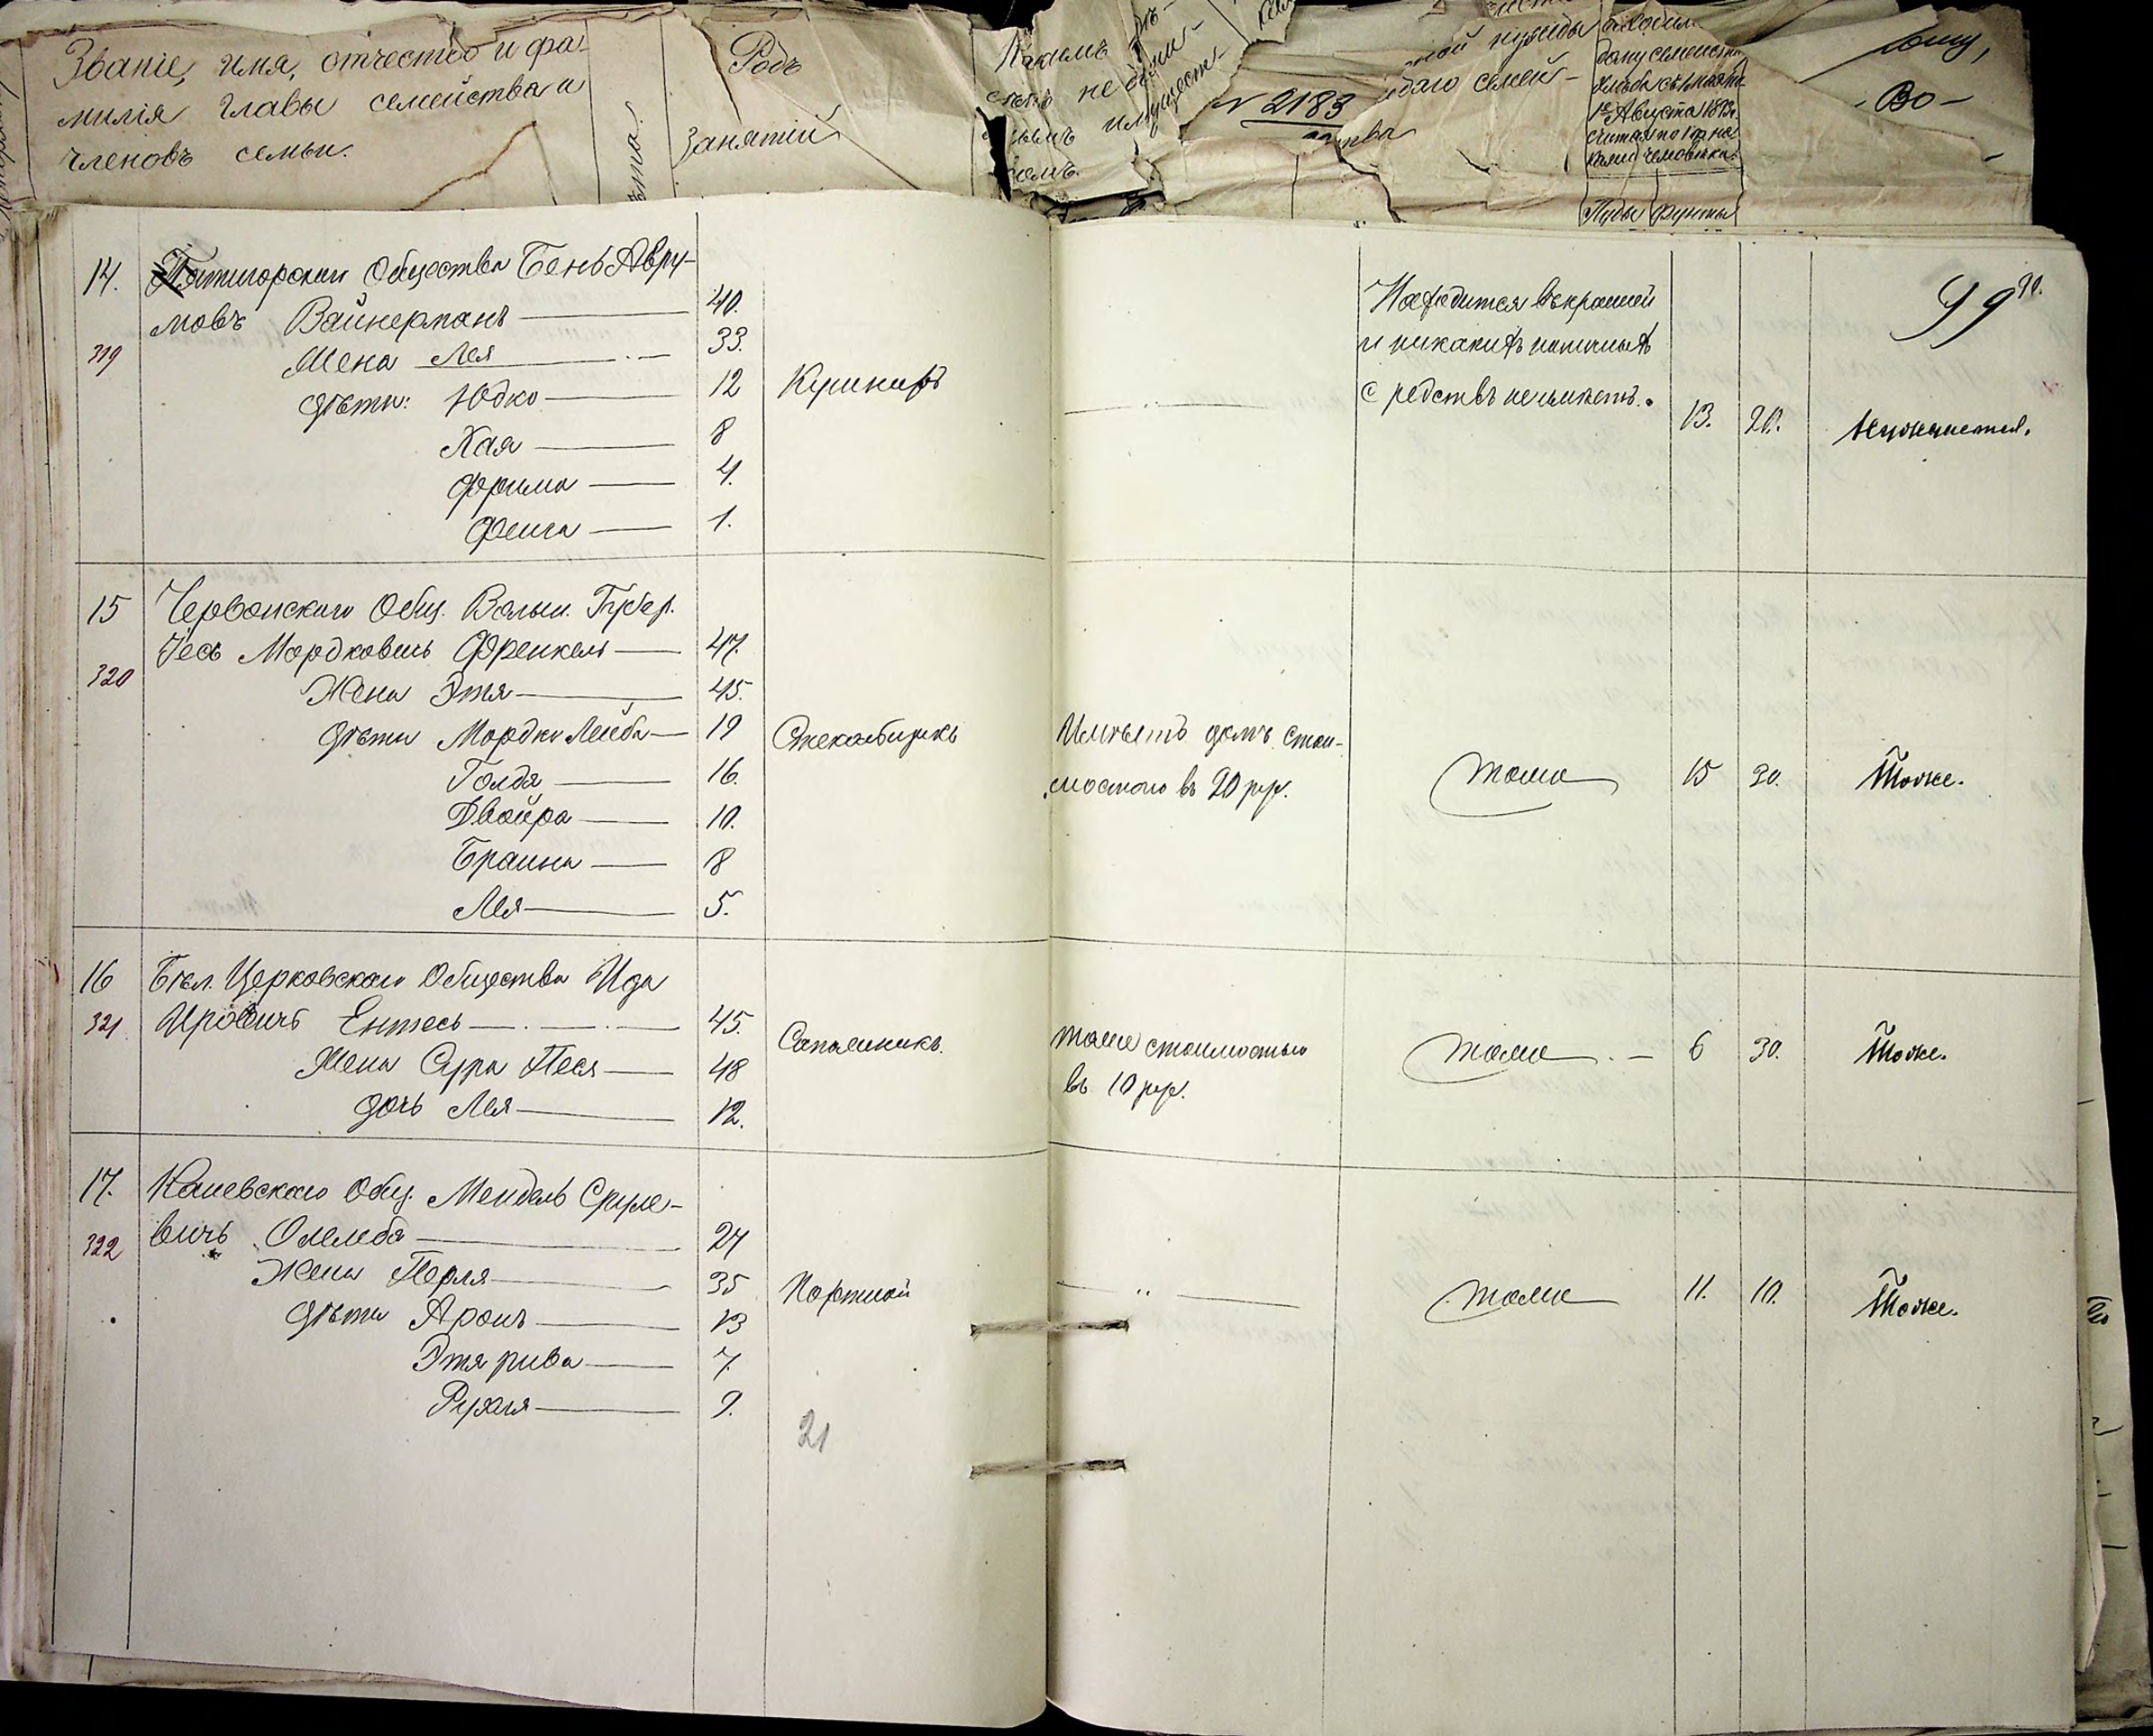 Званіе, имя, отчество и фа-
милія главы семейства и
членовъ семьи.
Родъ
занятій
№ 2183
Пуды фунты
-Во-
14. Пятигорскаго Общества Бень Авру-
мовъ Вайнерманъ 40.
319
Жена Лея 33.
дѣти: Юдко 12
Хая 8
Фрима 4.
Фейга 1.
Кушниръ
Находится въ крайней
и никакихъ наличныхъ
средствъ не имѣетъ.
13. 20.
Нуждается.
99 90.
15 Червонскаго Общ. Волын. Губер.
Іось Мордковичъ Френкель 47.
320
Жена Этя 45.
дѣти Мордко Лейба 19
Голда 16.
Двойра 10.
Браина 8
Лея 5.
Стекольщикъ
Имѣетъ домъ стои-
мостью въ 20 рур.
тоже
15 30.
Тоже.
16 Бѣл. Церковскаго Общества Ида
321 Ировичъ Ентесъ 45.
Жена Сура Песя 48
дочь Лея 12.
Сапожникъ.
тоже стоимостью
въ 10 рур.
тоже
6 30.
Тоже.
17. Каневскаго Общ. Мендель Сруле-
вичъ 24
322
Жена Перля 35
дѣти Аронъ 13
Этя рива 7.
Рухля 9.
Портной
тоже
11. 10.
Тоже.
21